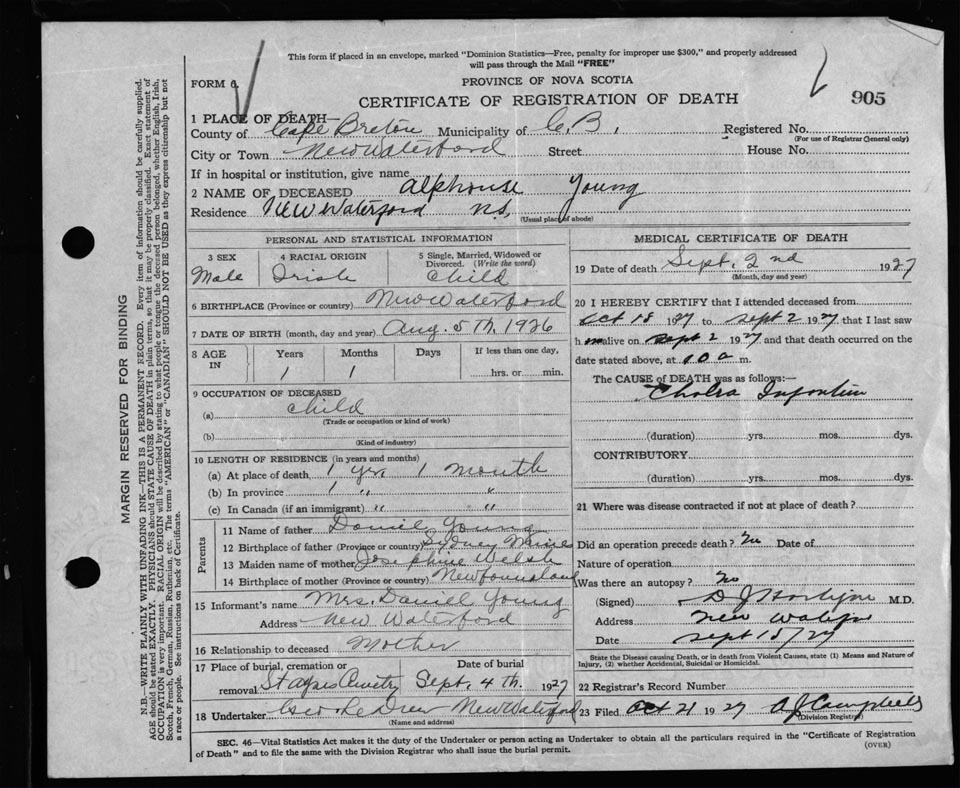 This form if placed in an envelope, marked "Dominion Statistics—Free, penalty for improper use $300," and properly addressed
will pass through the Mail "FREE"
FORM 6.
PROVINCE OF NOVA SCOTIA
CERTIFICATE OF REGISTRATION OF DEATH
905
1 PLACE OF DEATH—
County of Cape Breton Municipality of C.B. Registered No.
(For use of Registrar General only)
City or Town New Waterford Street House No.
If in hospital or institution, give name
2 NAME OF DECEASED Alphonse Young
Residence New Waterford N.S. (Usual place of abode)
PERSONAL AND STATISTICAL INFORMATION
3 SEX 4 RACIAL ORIGIN 5 Single, Married, Widowed or
Divorced. (Write the word)
Male Irish Child
6 BIRTHPLACE (Province or country) New Waterford
7 DATE OF BIRTH (month, day and year) Aug. 5th, 1926
8 AGE IN Years Months Days If less than one day,
1 1 hrs. or min.
9 OCCUPATION OF DECEASED
(a) Child
(Trade or occupation or kind of work)
(b)
(Kind of industry)
10 LENGTH OF RESIDENCE (in years and months)
(a) At place of death 1 yr, 1 month
(b) In province 1 " "
(c) In Canada (if an immigrant) " "
Parents
11 Name of father Daniel Young
12 Birthplace of father (Province or country) Sydney Mines
13 Maiden name of mother Josephine Welsh
14 Birthplace of mother (Province or country) Newfoundland
15 Informant's name Mrs. Daniel Young
Address New Waterford
16 Relationship to deceased Mother
17 Place of burial, cremation or Date of burial
removal St Agnes Sept. 4th. 1927
18 Undertaker New Waterford
(Name and address)
MEDICAL CERTIFICATE OF DEATH
19 Date of death Sept. 2nd 1927
(Month, day and year)
20 I HEREBY CERTIFY that I attended deceased from
Oct 18 1927 to Sept 2 1927 that I last saw
h m alive on Sept 2 1927 and that death occurred on the
date stated above, at 10 a m.
The CAUSE of DEATH was as follows:—
Cholra Infantim
(duration) yrs. mos. dys.
CONTRIBUTORY
(duration) yrs. mos. dys.
21 Where was disease contracted if not at place of death?
Did an operation precede death? No Date of
Nature of operation
Was there an autopsy? No
(Signed) D J M.D.
Address New
Date Sept 18/27
State the Disease causing Death, or in death from Violent Causes, state (1) Means and Nature of
Injury, (2) whether Accidental, Suicidal or Homicidal.
22 Registrar's Record Number
23 Filed Oct 21 1927 A J Campbell
(Division Registrar)
SEC. 46—Vital Statistics Act makes it the duty of the Undertaker or person acting as Undertaker to obtain all the particulars required in the "Certificate of Registration
of Death" and to file the same with the Division Registrar who shall issue the burial permit.
(OVER)
MARGIN RESERVED FOR BINDING
N.B.—WRITE PLAINLY WITH UNFADING INK—THIS IS A PERMANENT RECORD. Every item of information should be carefully supplied.
AGE should be stated EXACTLY. PHYSICIANS should STATE CAUSE OF DEATH in plain terms, so that it may be properly classified. Exact statement of
OCCUPATION is very important. RACIAL ORIGIN will be described by stating to what people or tongue the deceased person belonged, whether English, Irish,
Scotch, French, German, Russian, Ruthenian, etc. The terms "AMERICAN" or "CANADIAN" SHOULD NOT BE USED as they express citizenship but not
a race or people. See instructions on back of Certificate.